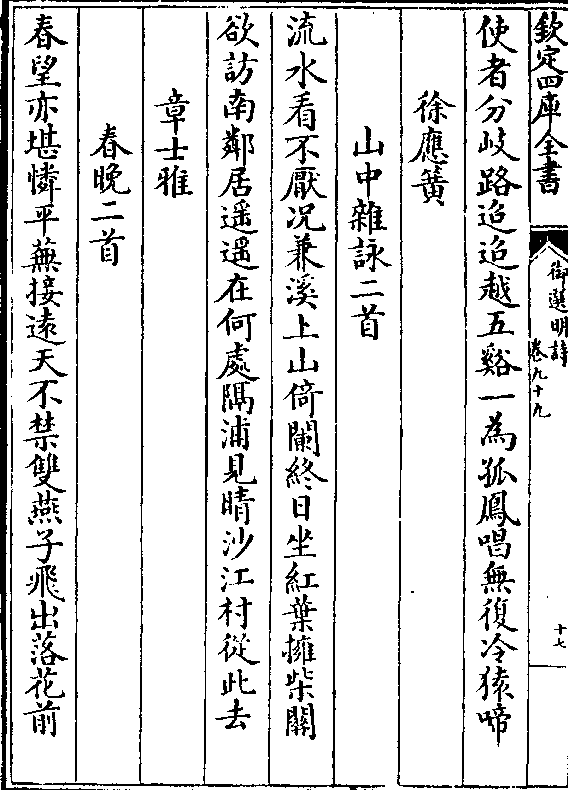 欽定四庫全書
御選明詩
卷九十九
十七
使者分岐路迢迢越五谿一為孤鳳唱無復冷猿啼
徐應簧
山中雜詠二首
流水看不厭况兼溪上山倚闌終日坐紅葉擁柴關
欲訪南鄰居遥遥在何處隅浦見晴沙江村從此去
章士雅
春晚二首
春望亦堪憐平蕪接遠天不禁雙燕子飛出落花前